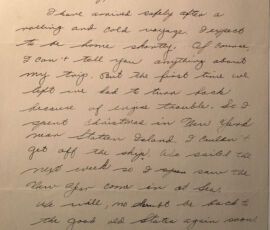 I have arrived safely after a
rolling and cold voyage. I expect
to be home shortly. Of course,
I can't tell you anything about
my trip. But the first time we
left we had to turn back
because of engine trouble. So I
spent Christmas in New York
near Staten Island. I couldn't
get off the ship. We sailed the
next week so I saw the
New Year come in at sea.
We will, no doubt be back to
the good old States again soon